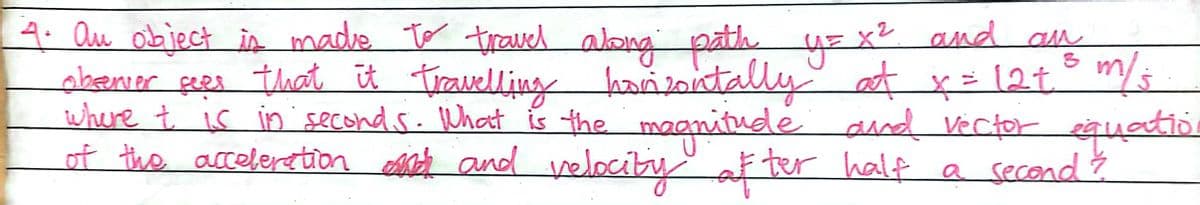 4. An object is made to travel along path y = x² and an
observer sees that it travelling horizontally at x = 12t³ m/s
where t is in seconds. What is the magnitude and vector equation
of the acceleration and velocity after half a second?